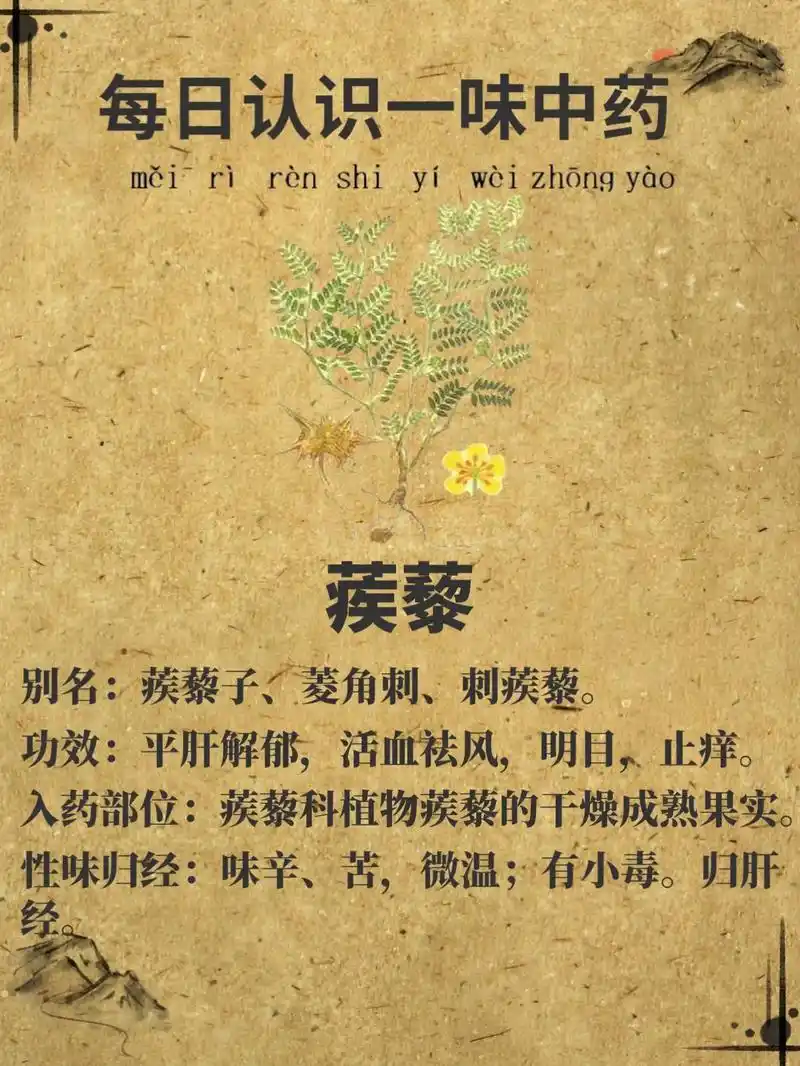 每日认识一味中药
měi rì rèn shi yí wèi zhōng yào
蒺藜
别名：蒺藜子、菱角刺、刺蒺藜。
功效：平肝解郁，活血祛风，明目，止痒。
入药部位：蒺藜科植物蒺藜的干燥成熟果实。
性味归经：味辛、苦，微温；有小毒。归肝
经。